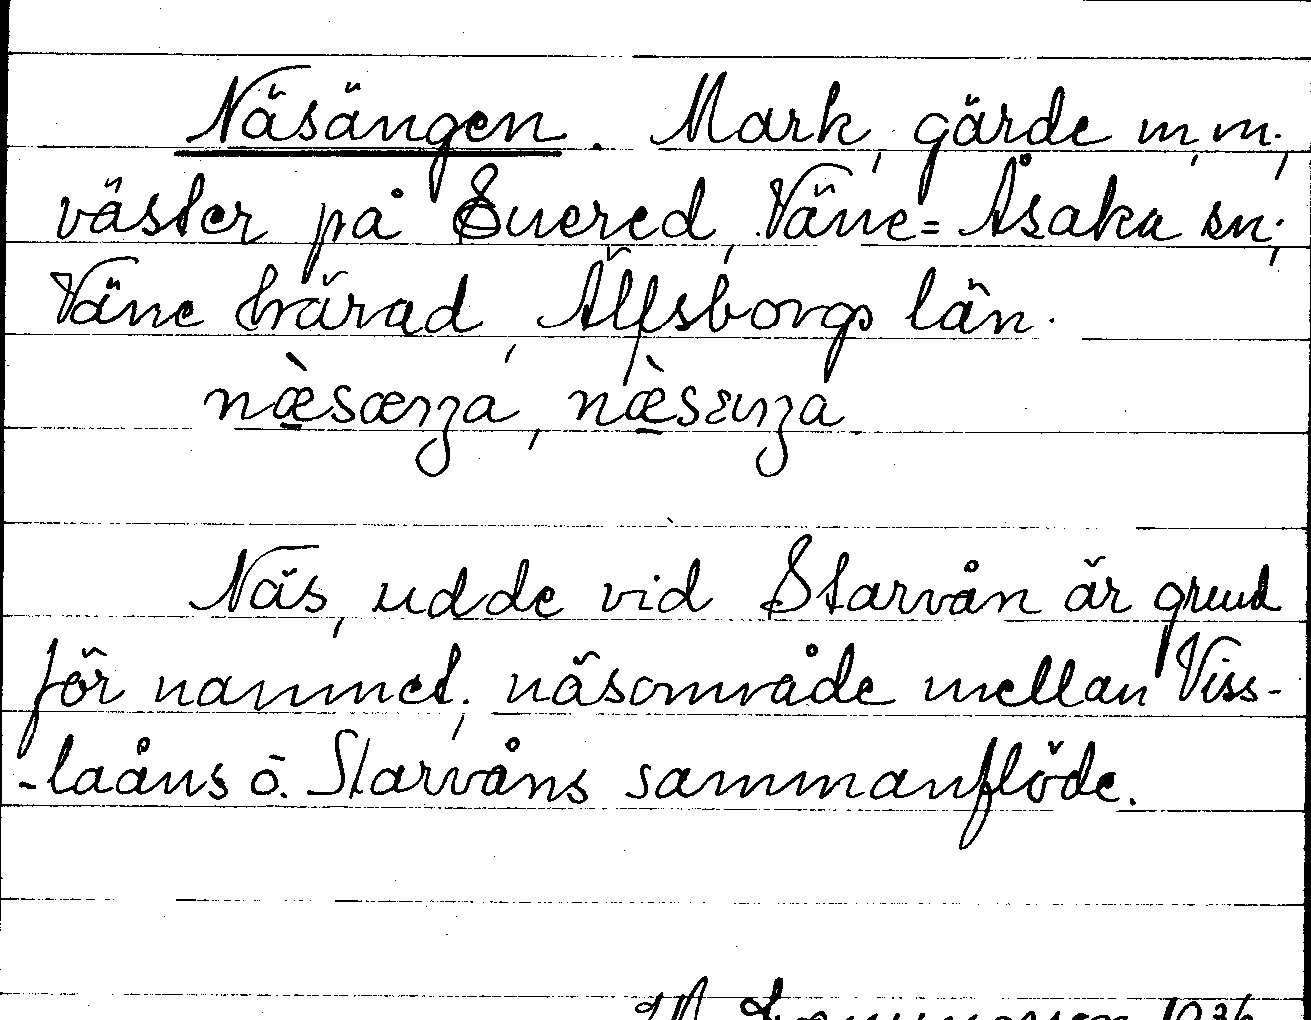 Näsängen. Mark, gärde m.m.,
väster på Suered, Väne=Åsaka sn;
Väne härad, Älfsborgs län.
næ̀sæŋa, næ̀sɛŋa
Näs, udde vid Starvån är grund
för namnet; näsområde mellan Viss-
-laåns o. Starvåns sammanflöde.
1936